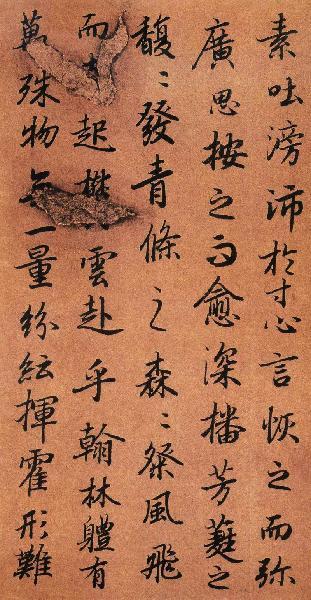 素吐滂沛於寸心言恢之而弥
廣思按之而愈深播芳蕤之
馥〻發青條之森〻粲風飛
而起雲赴乎翰林體有
萬殊物無一量紛紜揮霍形難